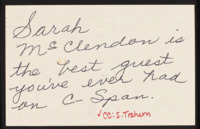 Sarah
McClendon is
the best guest
you've ever had
on C-Span.
CC: S. Trahern